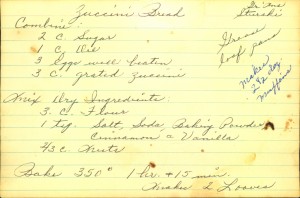 Zuccini Bread
Combine:
2 C. Sugar
1 C. Oil
3 Eggs well beaten
3 C. grated zuccini
Grease
loaf pans
Makes
2 1/2 doz
Muffins
Mix Dry Ingredients
3 C. Flour
1 tsp. Salt, Soda, Baking Powder
Cinnamon + Vanilla
2/3 c. Nuts
Bake 350° 1 hr. + 15 min.
Makes 2 Loaves